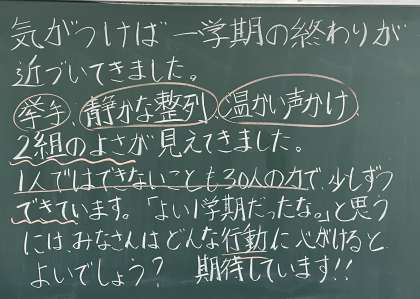 気がつけば一学期の終わりが
近づいてきました。
挙手、静かな整列、温かい声かけ
2組のよさが見えてきました。
1人ではできないことも30人の力で、少しずつ
できています。「よい1学期だったな。」と思う
にはみなさんはどんな行動に心がけると
よいでしょう? 期待しています!!